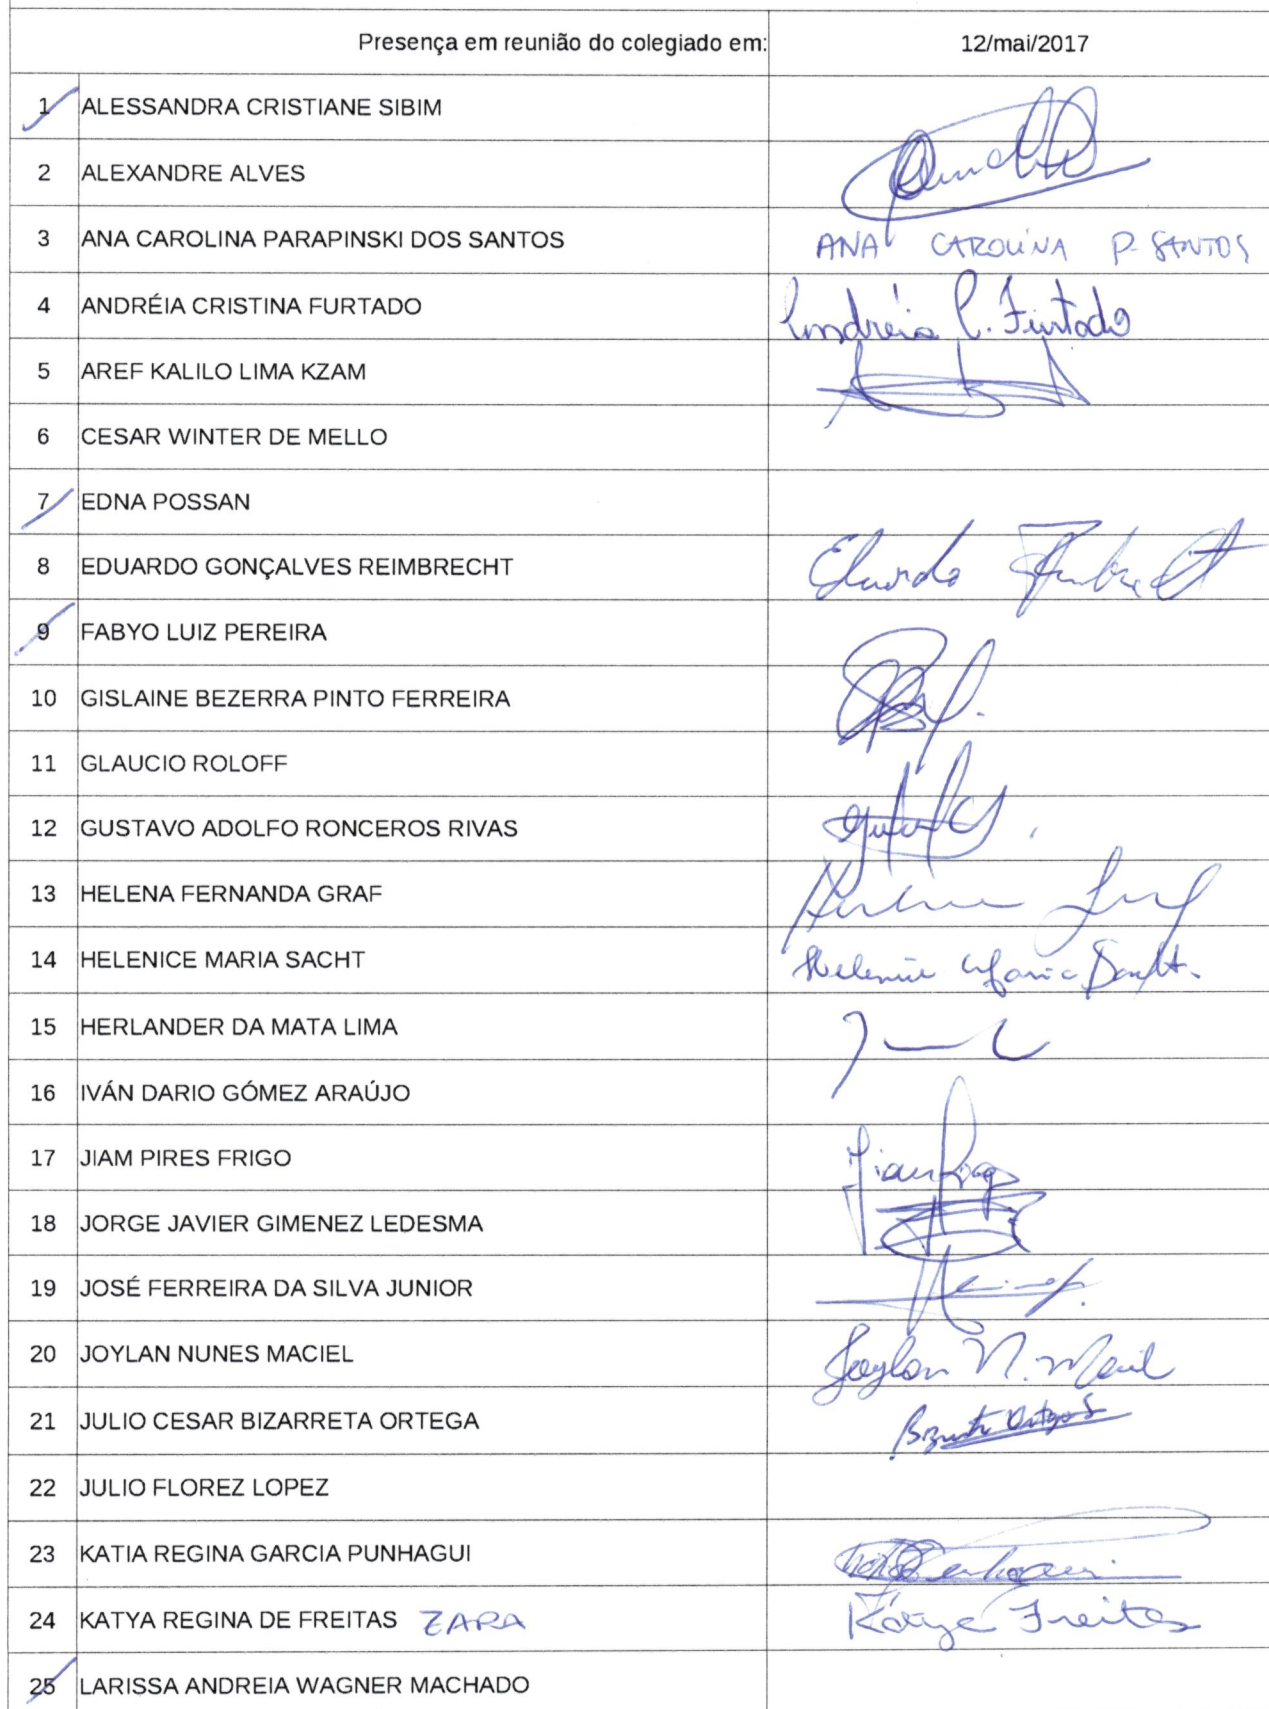 Presença em reunião do colegiado em: 12/mai/2017
1 ALESSANDRA CRISTIANE SIBIM
2 ALEXANDRE ALVES
3 ANA CAROLINA PARAPINSKI DOS SANTOS ANA CAROLINA P. SANTOS
4 ANDRÉIA CRISTINA FURTADO Andréia C. Furtado
5 AREF KALILO LIMA KZAM
6 CESAR WINTER DE MELLO
7 EDNA POSSAN
8 EDUARDO GONÇALVES REIMBRECHT Eduardo
9 FABYO LUIZ PEREIRA
10 GISLAINE BEZERRA PINTO FERREIRA
11 GLAUCIO ROLOFF
12 GUSTAVO ADOLFO RONCEROS RIVAS
13 HELENA FERNANDA GRAF
14 HELENICE MARIA SACHT Helenice Maria Sacht.
15 HERLANDER DA MATA LIMA
16 IVÁN DARIO GÓMEZ ARAÚJO
17 JIAM PIRES FRIGO
18 JORGE JAVIER GIMENEZ LEDESMA
19 JOSÉ FERREIRA DA SILVA JUNIOR
20 JOYLAN NUNES MACIEL Joylan N. Maciel
21 JULIO CESAR BIZARRETA ORTEGA
22 JULIO FLOREZ LOPEZ
23 KATIA REGINA GARCIA PUNHAGUI
24 KATYA REGINA DE FREITAS ZARA Katya Freitas
25 LARISSA ANDREIA WAGNER MACHADO